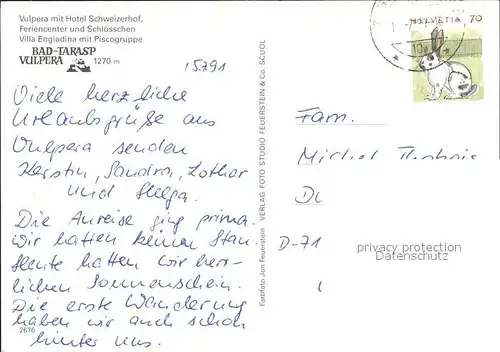 Vulpera mit Hotel Schweizerhof,
Feriencenter und Schlösschen
Villa Engiadina mit Piscogruppe
BAD-TARASP
VULPERA 1270 m
15.7.91
Viele herzliche
Urlaubsgrüße aus
Vulpera senden
Kerstin, Sandra, Lothar
und Helga.
Die Anreise ging prima.
Wir hatten keinen Stau.
Heute hatten wir herr-
lichen Sonnenschein.
Die erste Wanderung
haben wir auch schon
hinter uns.
2676
Farbfoto Jon Feuerstein © VERLAG FOTO STUDIO FEUERSTEIN & Co. SCUOL
HELVETIA 70
Fam.
Michel
D-71
privacy protection
Datenschutz